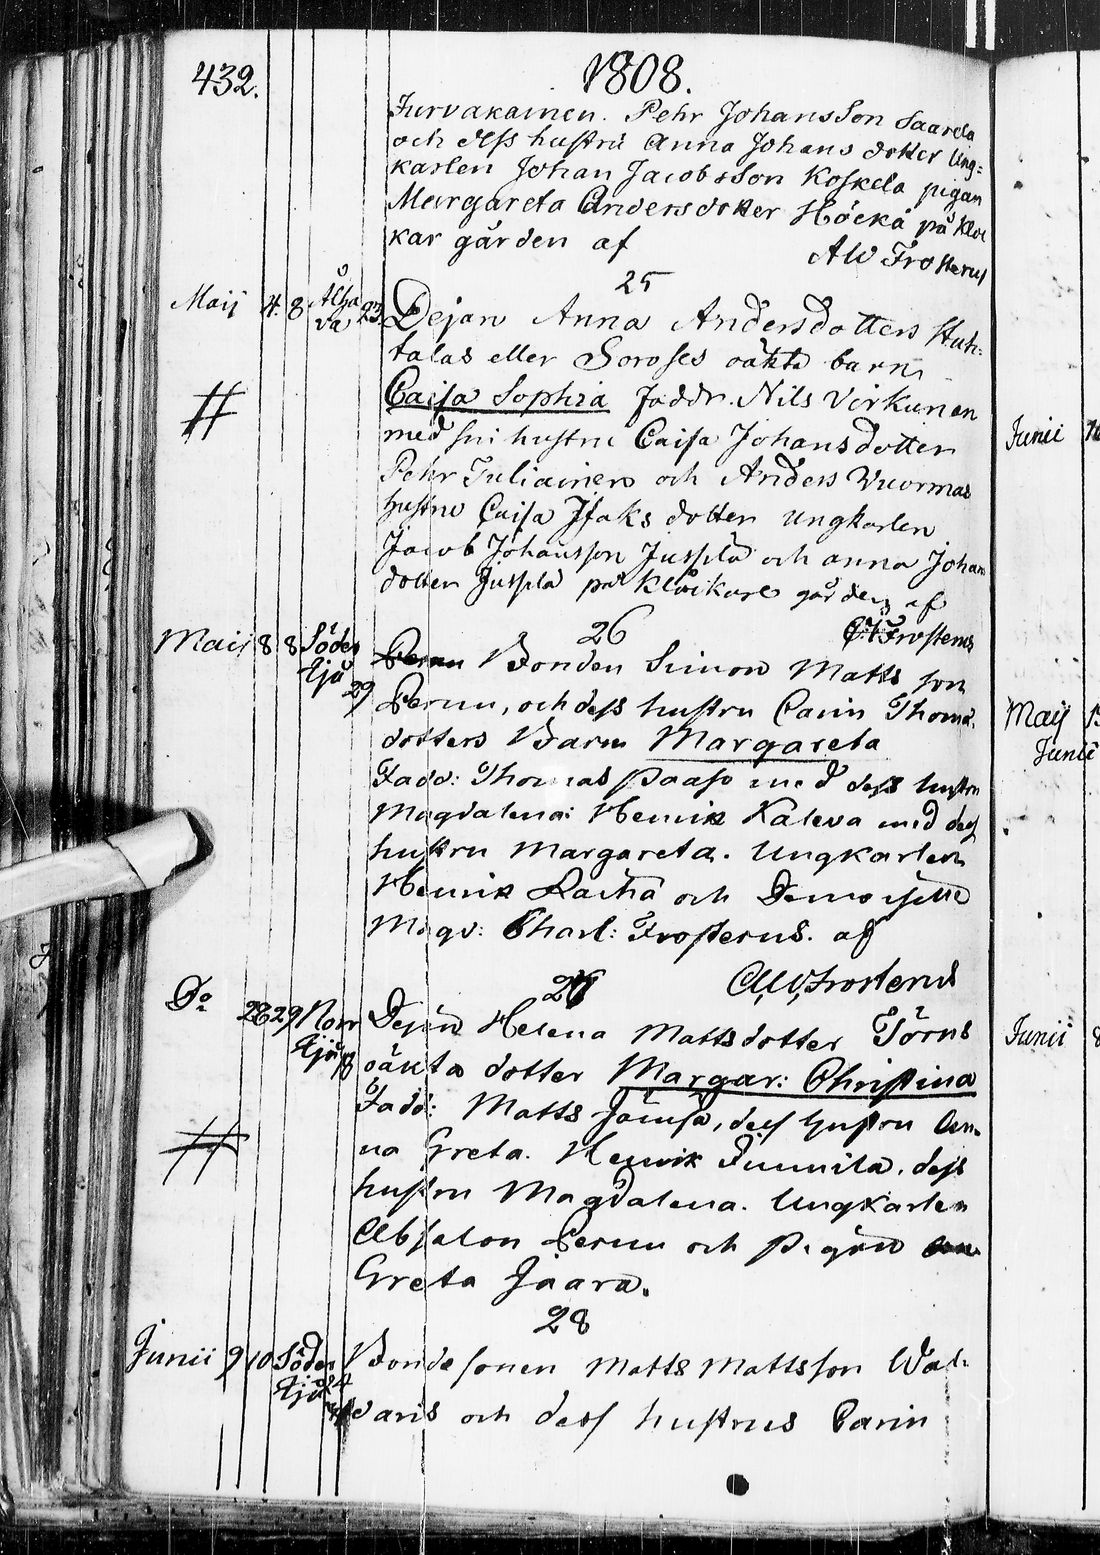 432.
1808.
Jurvakainen. Pehr Johansson Saarela
och dess hustru Anna Johans dotter Ung=
karlen Johan Jacobsson Koskela pigan
Margareta Andersdotter Höckä på Klåc
kar gården af
AW Frosterus
25
Maij 4. 8 Alha
va 23.
Dejan Anna Andersdotters Huh=
talas eller Soroses oäkta barn
Caisa Sophia Faddr. Nils Virkunen
med sin hustru Caisa Johansdotter
Pehr Juliainen och Anders Vuormas
hustru Caisa Isaks dotter Ungkarlen
Jacob Johansson Jussila och anna Johan
dotter Jussila på Klåikare gården af
AWFrosterus
26
Maij 8 8 Söder
Ejü
29
Bonden Simon Matts son
Peruu, och dess hustru Carin Thoma
dotters Barn Margareta
Fadd: Thomas Paaso med dess hustru
Magdalena: Henrik Kaleva med dess
hustru Margareta. Ungkarlen
Henrik Raihä och Demoiselle
Magd: Charl: Frosterus. af
AW,Frosterus
27
Do 28 29 Norr
Ejü 18
Dejan Helena Mattsdotter Törns
oäkta dotter Margar: Christina
Fadd: Matts Jämsä, dess hustru An-
na Greta. Henrik Junnila. dess
hustru Magdalena. Ungkarlen
Absalon Peruu och Pigan
Greta Jaara.
28
Junii 9 10 Söder
Ejü 24
Bonde sonen Matts Mattsson Wah
varis och dess hustrus Carin
Junii
Maij
Junii
Junii 8